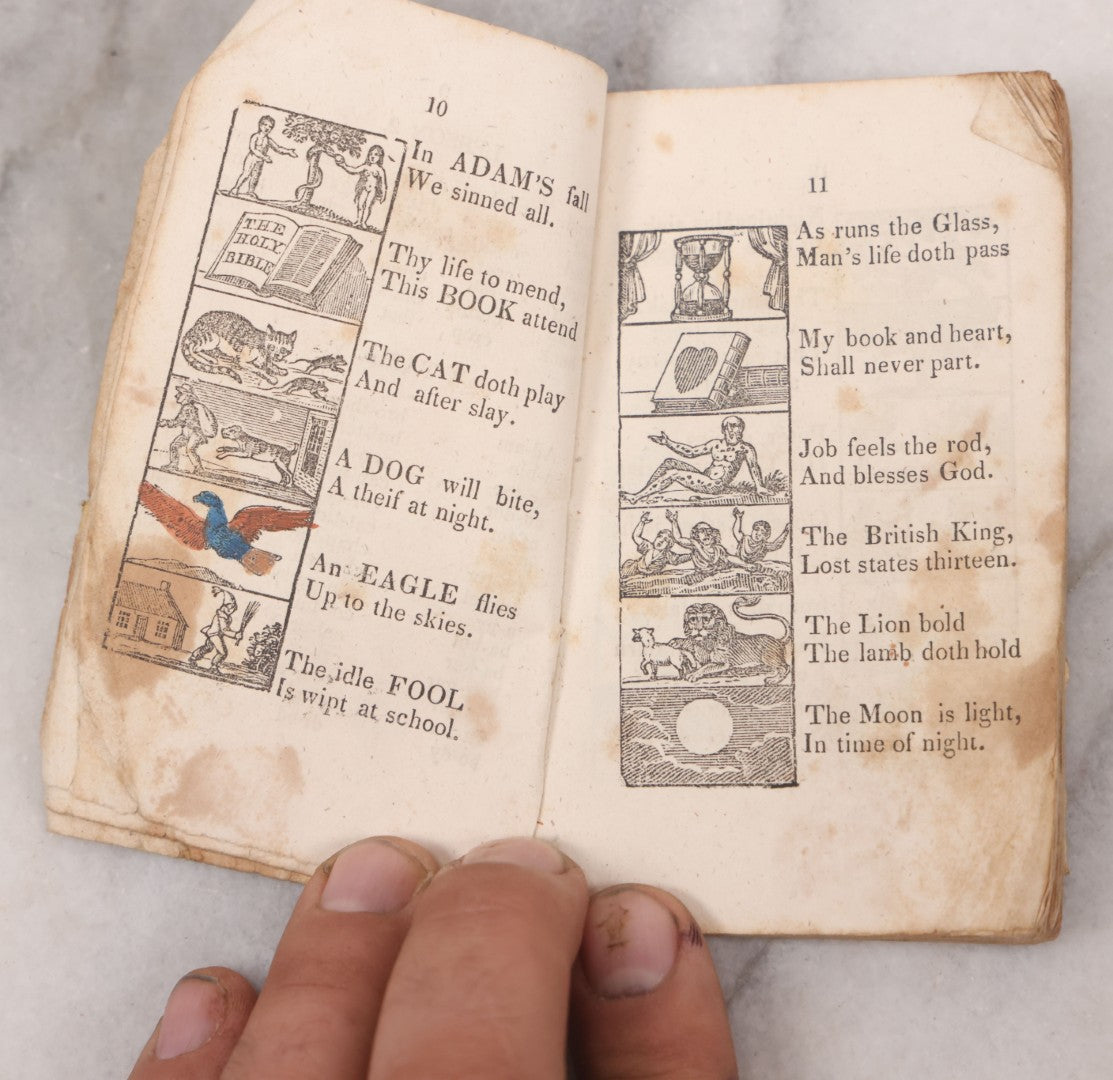 10
In ADAM'S fall
We sinned all.
THE
HOLY
BIBLE
Thy life to mend,
This BOOK attend
The CAT doth play
And after slay.
A DOG will bite,
A theif at night.
An EAGLE flies
Up to the skies.
The idle FOOL
Is wipt at school.
11
As runs the Glass,
Man's life doth pass
My book and heart,
Shall never part.
Job feels the rod,
And blesses God.
The British King,
Lost states thirteen.
The Lion bold
The lamb doth hold
The Moon is light,
In time of night.